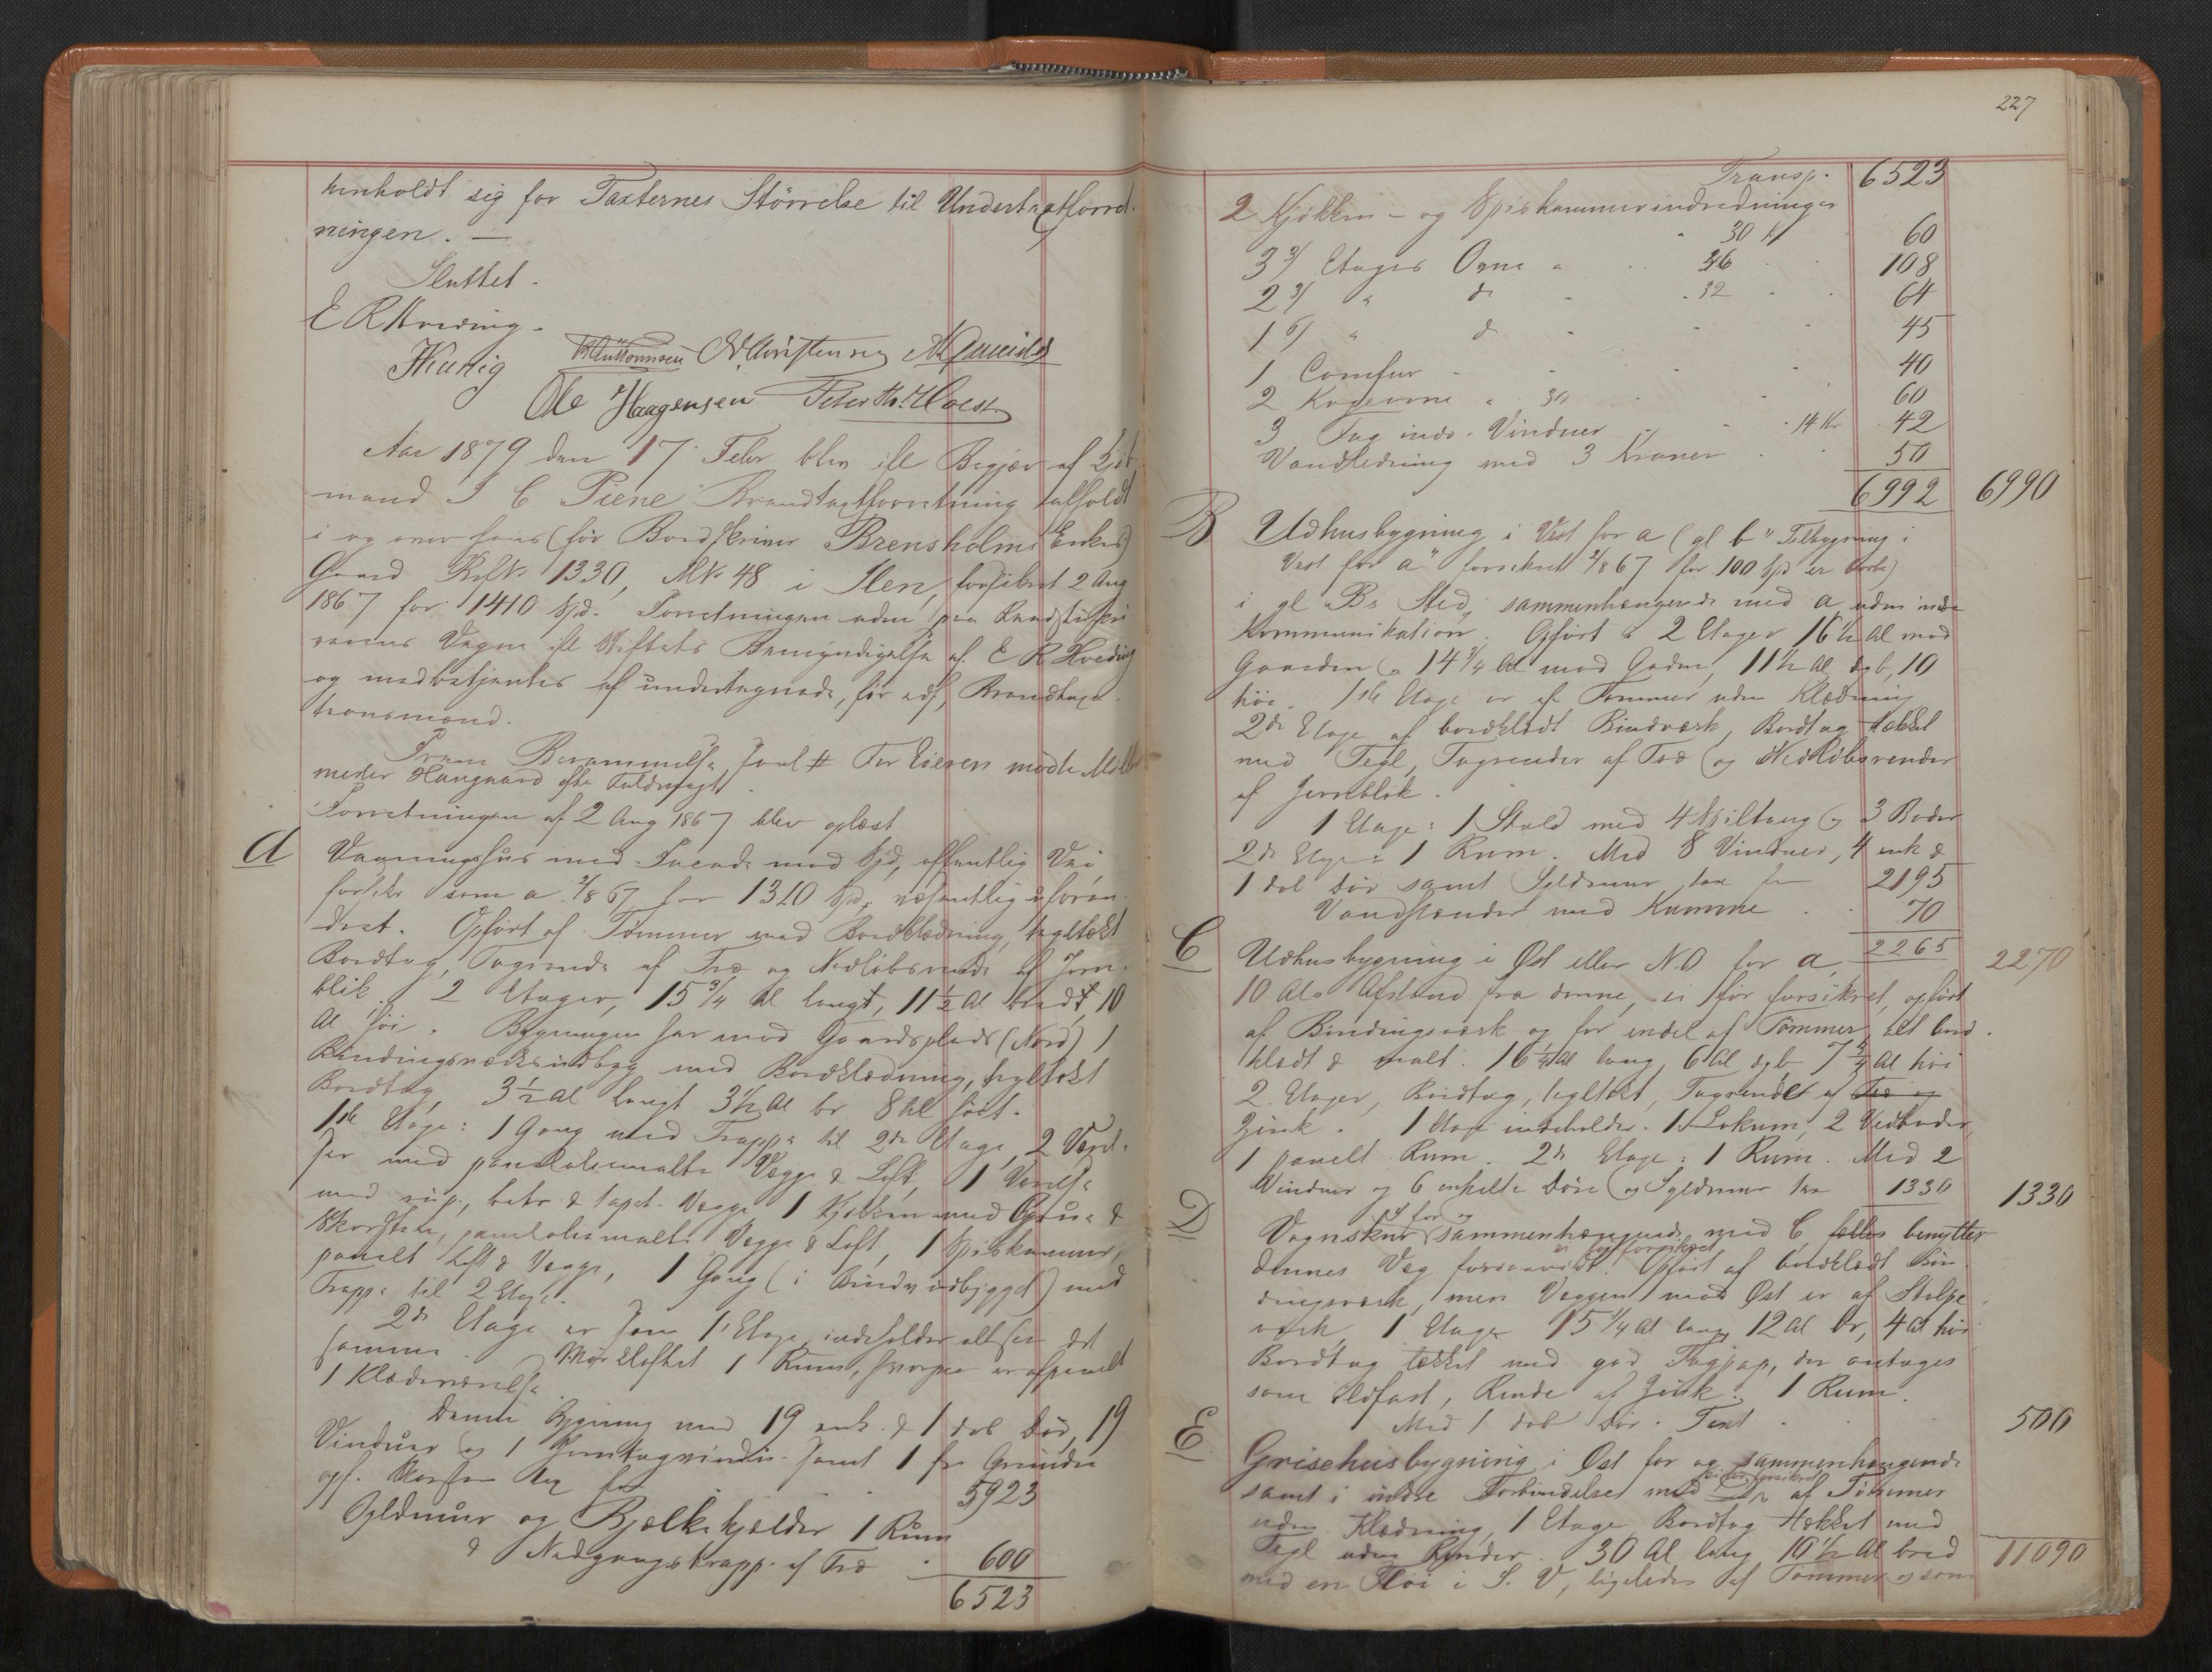 henholdt sig for Taxternes Störrelse til Undertaxtforret-
ningen. —
Sluttet.
E R Hveding.
Ole Haagensen Peter
Aar 1879 den 17 Febr blev ifl Begjær af Kjöb-
mand I C. Piene Brandtaxtforretning afholdt
i og over hans (för Bordskriver Brensholms Enkes)
Gaard RdNr 1330, MNr 48 i Ilen, forsikret 2 Aug
1867 for 1410 Spd. Forretningen
Vegne ifl Stiftets Bemyndigelse af E R Hveding
og medbetjentes af undertegnede, för edf, Brandtaxa-
tionsmænd.
Frem Berammelse For Eieren mödte
Haugaard efter Fuldmagt.
Forretningen af 2 Aug 1867 blev oplæst
A Vaaningshus med Facade mod Syd, offentlig Vei
forsikr som a 2/8 67 for 1310 Spd, væsentlig uforan-
dret. Opfört af Tömmer med Bordklædning, tegltækt
Bordtag, Tagrende af Træ og Nedlöbsrende af Jern-
blik. 2 Etager, 15 3/4 Al langt, 11 1/2 Al bredt, 10
Al höi. Bygningen har mod Gaardsplads (Nord) 1
Bindingsværksindbyg med Bordklædning, tegltækt
Bordtag, 3 1/2 Al langt 3 1/2 Al br 8 Al höit.
1ste Etage: 1 Gang med Trappe til 2den Etage, 2 Værel-
ser med panel oliemalte Vægge & Loft, 1 Værelse
med betr & tapet. Vægge 1 Kjökken med Grue &
Skorsten, panel oliemalte Vægge & Loft, 1 Spiskammer,
panelt Loft & Vægge, 1 Gang (i Bindv indbygget) med
Trappe til 2 Etage.
2den Etage er som 1 Etage, indeholder altsaa det
samme. Mörkloftet 1 Rum, hvorpaa er afpanelt
1 Klædeværelse.
Denne Bygning med 19 enk. & 1 dob Dör, 19
Vinduer og 1 samt 1 fra Grunden
opf. Skorsten for 5923
Syldmur og Bjælkekjælder 1 Rum
& Nedgangstrappe af Træ 600
6523
227
Transp. 6523
2 Kjökken- og Spiskammerindredninger
30 Kr 60
3 3/ Etages Ovne a 36 108
2 3/ " do 32 64
1 6/ " do 45
1 Comfur 40
2 Kogeovne a 30 60
3 Fag inds. Vinduer 14 Kr 42
Vandledning med 3 Kraner 50
6992 6990
B Udhusbygning i Vest for a (gl b" Tilbygning i
Vest for a" forsikret 2/8 67 for 100 Spd er borte)
i gl Bs Sted, sammenhængende med a uden indre
Kommunikation. Opfört i 2 Etager 16 1/2 Al mod
Gaarden og 14 3/4 Al mod Gaden, 11 1/2 Al dyb, 10
höi. 1ste Etage er af Tömmer uden Klædning
2den Etage af bordklædt Bindværk, Bordtag tækket
med Tegl, Tagrender af Træ og Nedlöbsrender
af Jernblik.
1 Etage: 1 Stald med 4 Spiltaug og 3 Boder
2den Etage: 1 Rum. Med 8 Vinduer, 4 enk &
1 dob Dör samt Syldmur tax for 2195
Vandstænder med Kumme 70
2265 2270
C Udhusbygning i Öst eller N.O for a,
10 Al. Afstand fra denne, ei för forsikret, opfört
af Bindingsværk og for endel af Tömmer, alt bord-
klædt & malt. 16 1/4 Al lang, 6 Al dyb, 7 3/4 Al höi
2 Etager, Bordtag, tegltækt, Tagrender af Træ og
Zink. 1 Etage indeholder: 1 Lokum, 2 Vedboder,
1 panelt Rum. 2den Etage: 1 Rum. Med 2
Vinduer og 6 enkelte Döre og Syldmur tax 1330 1330
D Vognskur sammenhængende med C, benytter
dennes Væg forsaavidt. ei för forsikret Opfört af bordklædt Bin-
dingsværk, men Væggen mod Öst er af Stolpe-
værk, 1 Etage 15 1/4 Al lang 12 Al br, 4 Al höi
Bordtag tækket med god Tagpap, der antages
som ildfast, Rende af Zink. 1 Rum.
Med 1 dob Dör. Taxt 500
E Grisehusbygning i Öst for og sammenhængende
samt i indre Forbindelse med D, ei för forsikret af Tömmer
uden Klædning, 1 Etage Bordtag tækket med
Tegl uden Render. 30 Al lang 10 1/2 Al bred 11090
med en Flöi i S. V, ligeledes af Tömmer og som